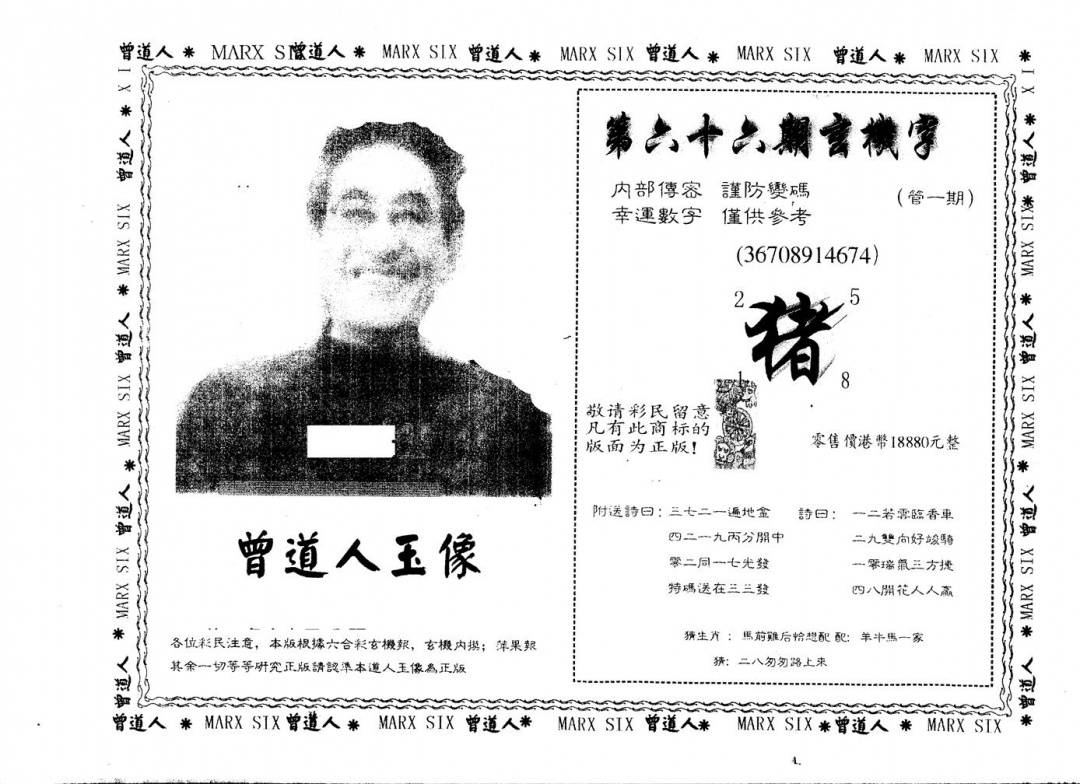 曾道人 * MARX SIX 曾道人 * MARX SIX 曾道人 * MARX SIX 曾道人 * MARX SIX 曾道人 * MARX SIX *
第六十六期玄機字
内部傳密 謹防變碼
(管一期)
幸運數字 僅供參考
(36708914674)
2 5
猪
1 8
敬请彩民留意
凡有此商标的
版面为正版!
零售價港幣18880元整
附送詩曰: 三七二一遍地金
四二一九丙分開中
零二同一七光發
特碼送在三三發
詩曰: 一二若雲臨香車
二九雙向好竣騎
一零瑞氣三方捷
四八開花人人贏
猜生肖: 馬前雞后恰想配 配: 羊牛馬一家
猜: 二八匆匆路上來
曾道人玉像
各位彩民注意,本版根據六合彩玄機報,玄機内揭;萍果報
其余一切等等研究正版請認準本道人玉像為正版
曾道人 * MARX SIX 曾道人 * MARX SIX 曾道人* MARX SIX 曾道人* MARX SIX *曾道人 * MARX SIX *
4.